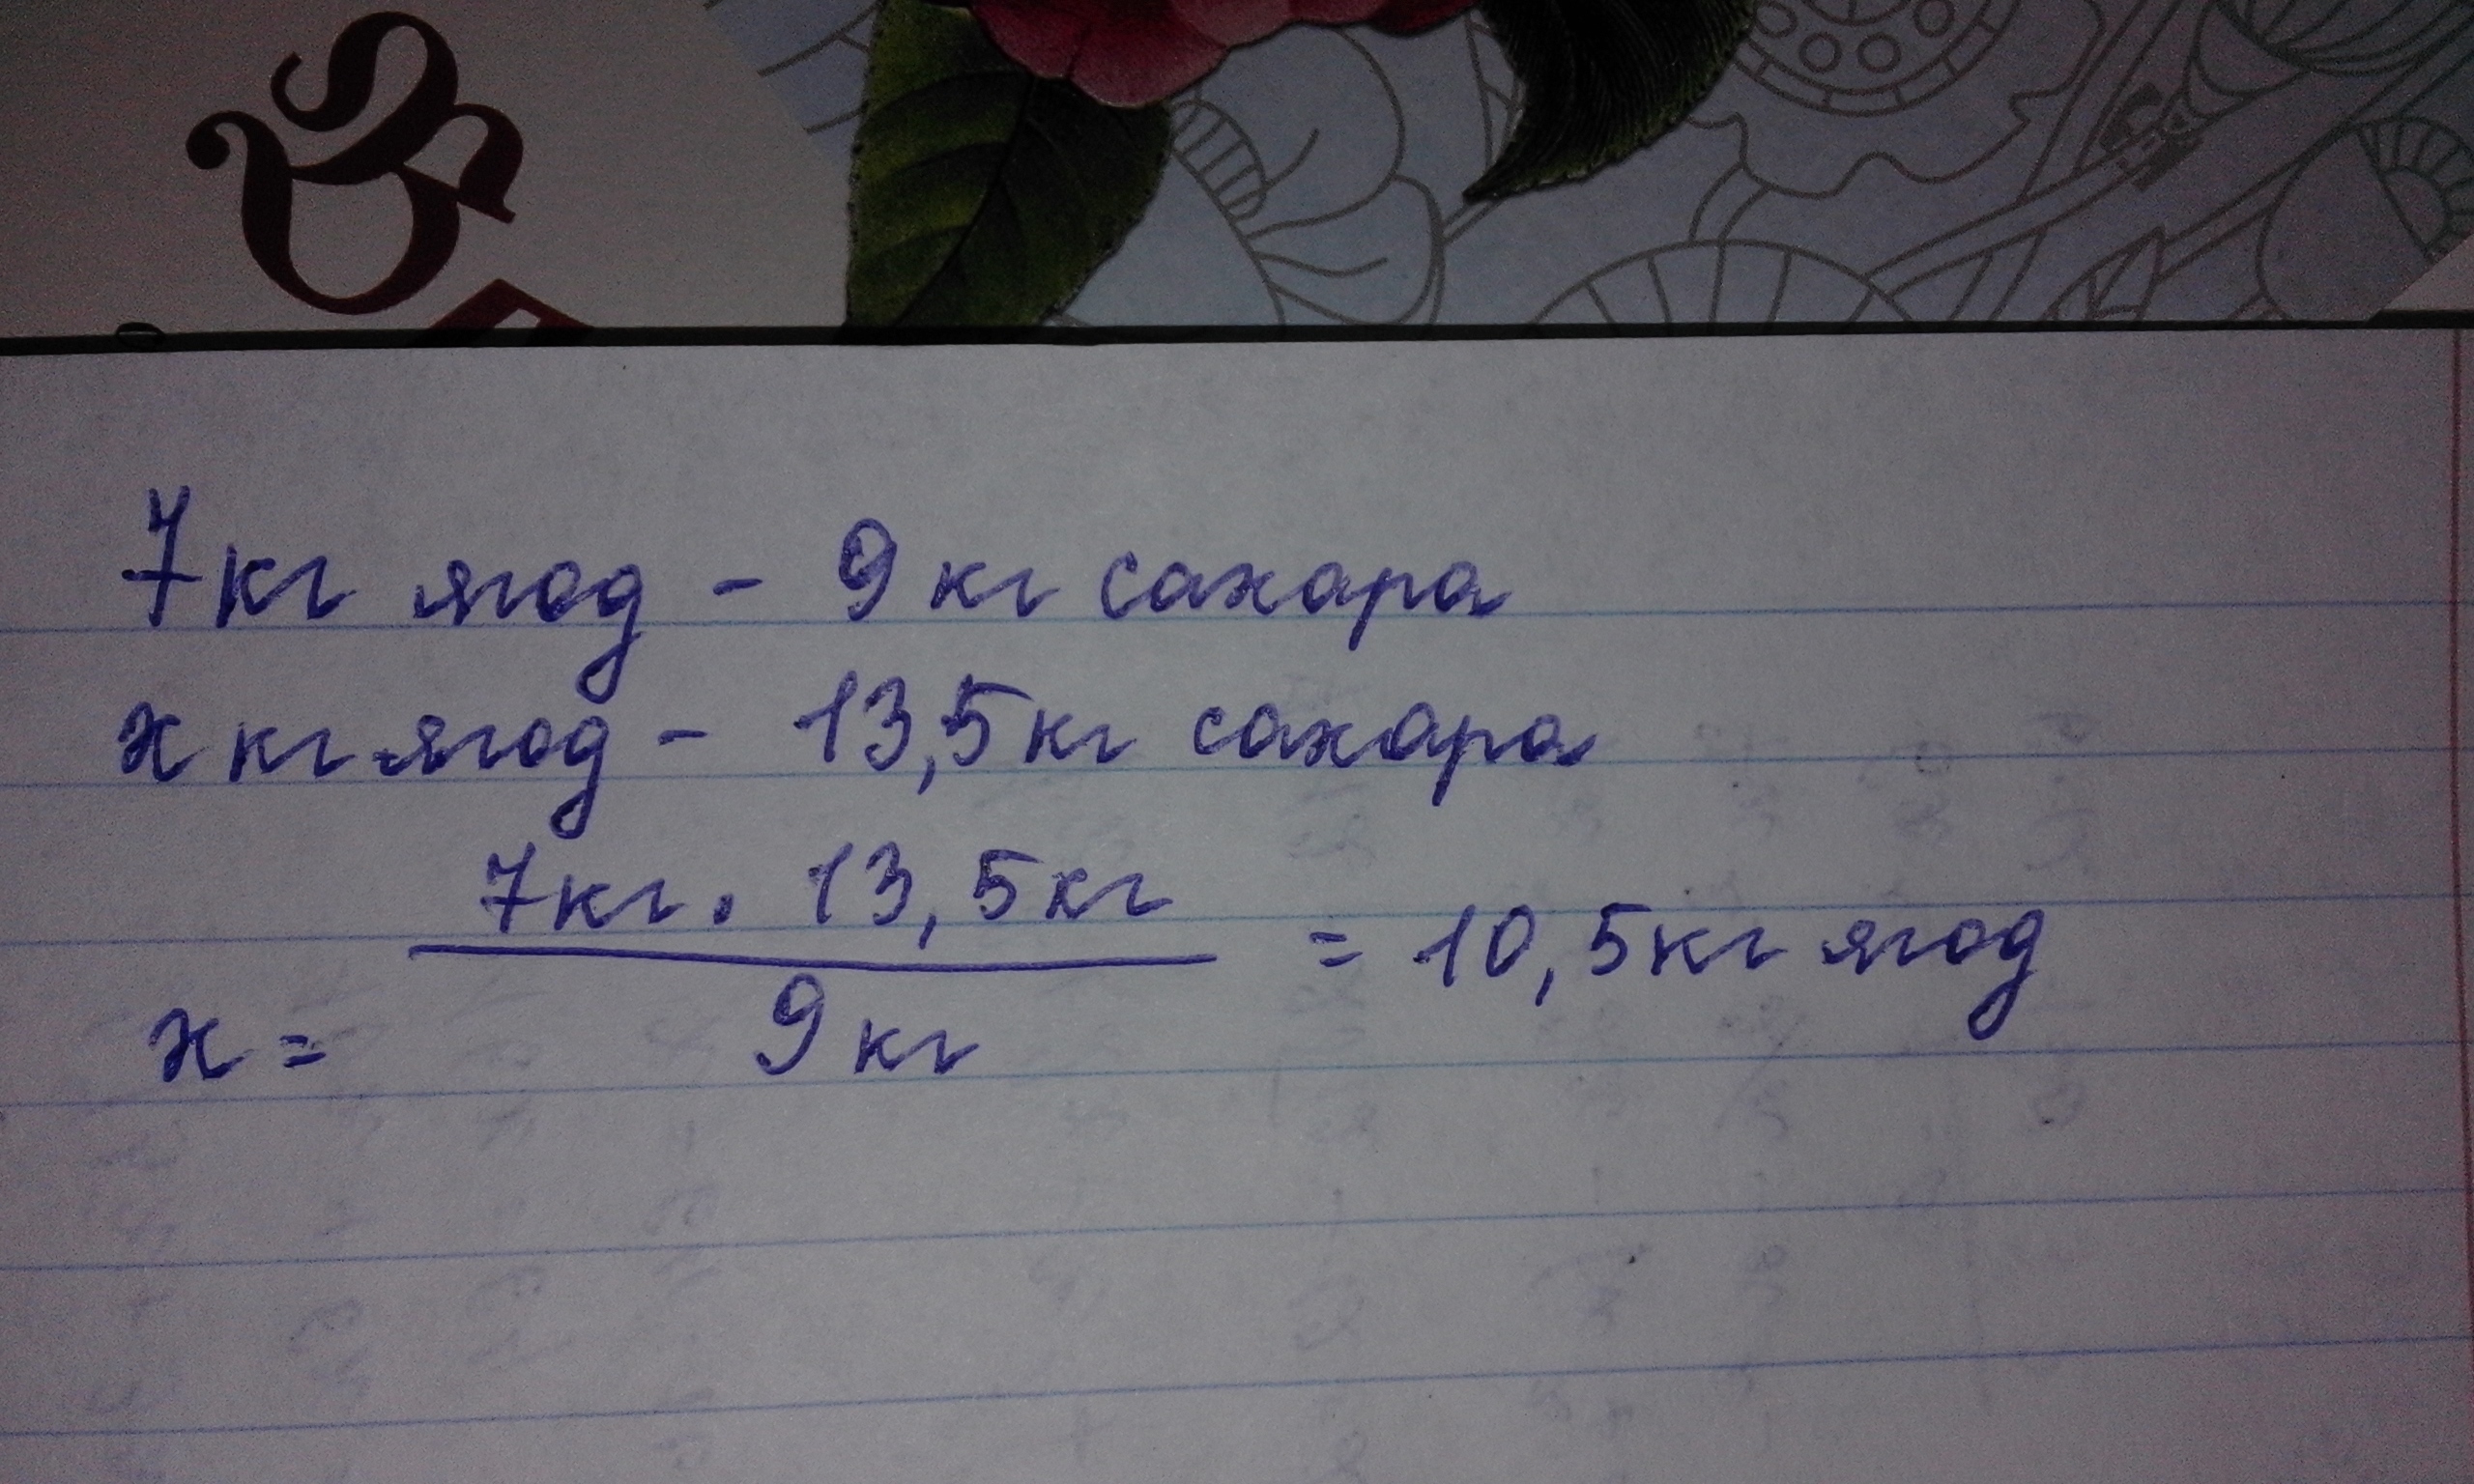 7 кг ягод - 9 кг сахара
x кг ягод - 13,5 кг сахара
x = 7кг . 13,5кг / 9 кг = 10,5кг ягод